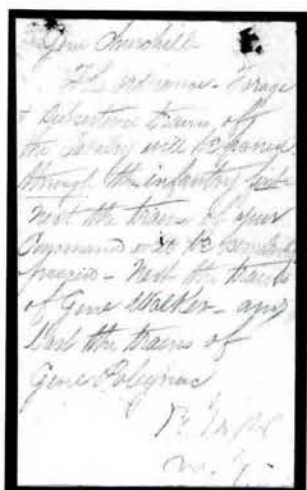 Genl Churchill
The ordnance - Forage
& Subsistence trains of
the Cavalry will be passed
through the infantry
Next the trains of your
Command are to be
- Next the trains
of Genl Walker - and
Last the trains of
Genl Polignac